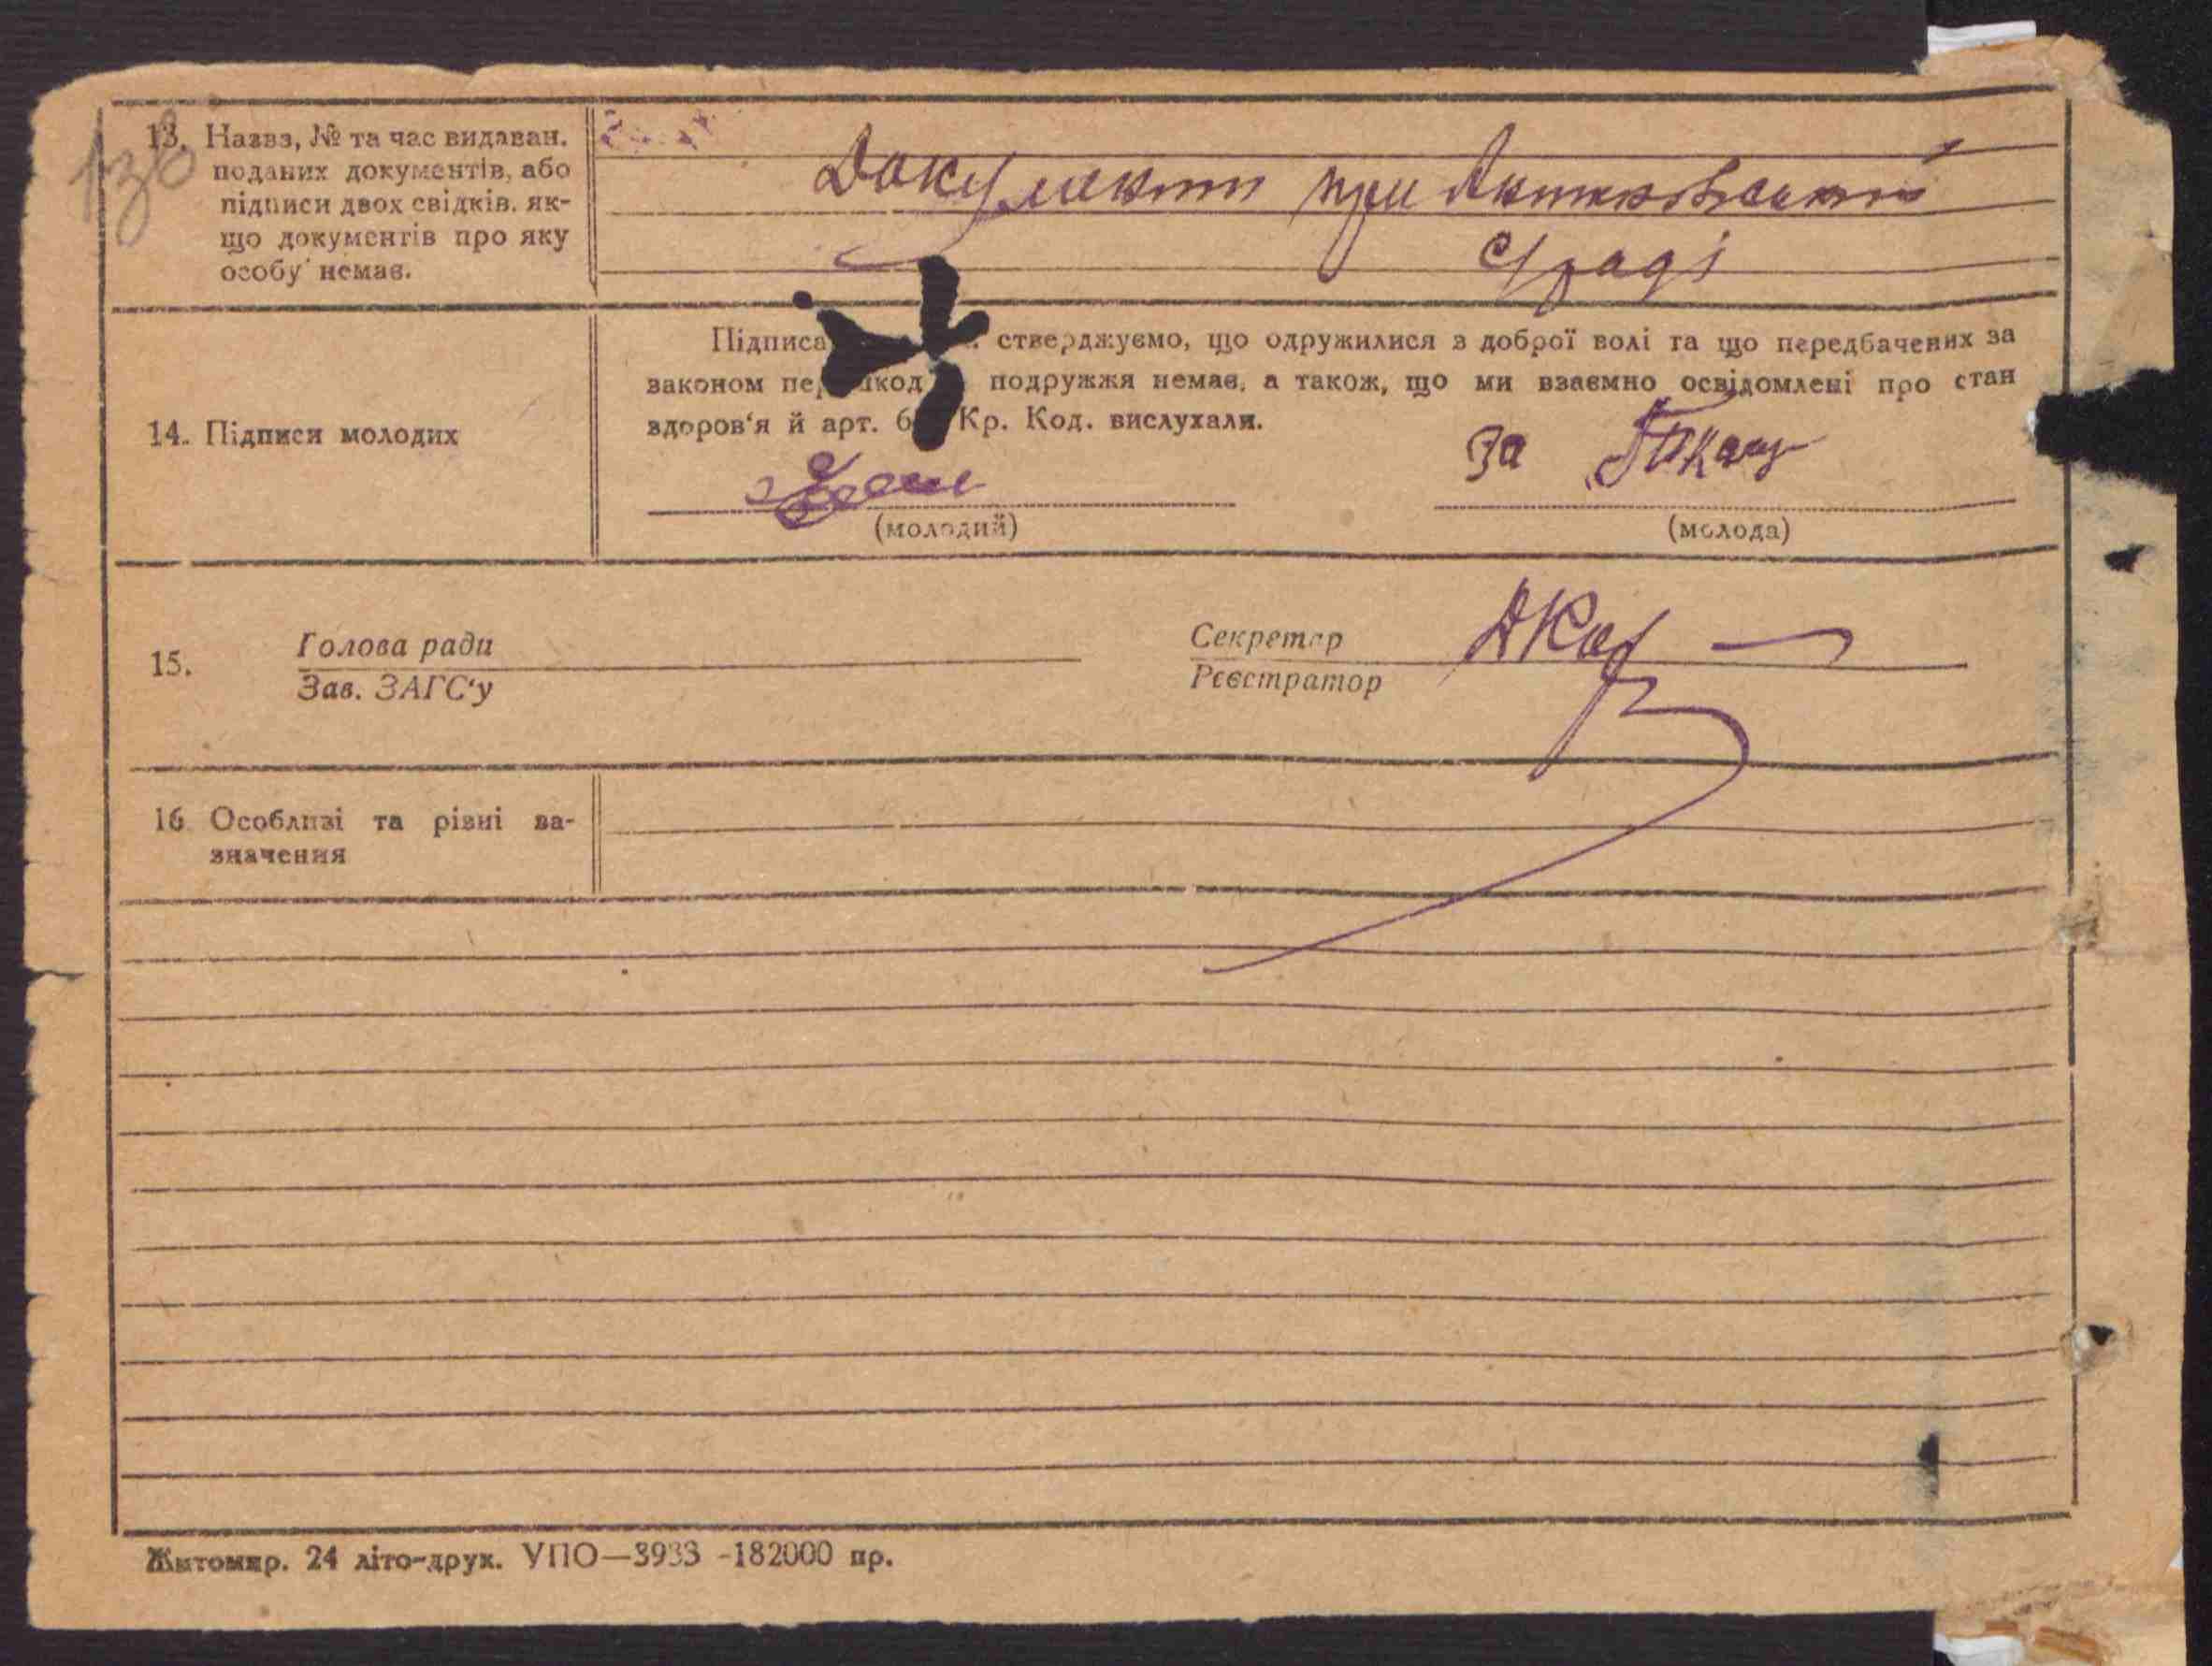 13. Назва, № та час видаван.
поданих документів, або
підписи двох свідків, як-
що документів про яку
особу немає.
Документи при
с/раді
138
14. Підписи молодих
Підписа стверджуємо, що одружилися з доброї волі та що передбачених за
законом пе шкод подружжя немає, а також, що ми взаємно освідомлені про стан
здоров'я й арт. 6 Кр. Код. вислухали.
За
(молодий) (молода)
15. Голова ради
Зав. ЗАГС'у
Секретар
Реєстратор
16 Особливі та різні за-
значення
Житомир. 24 літо-друк. УПО—3933 -182000 пр.